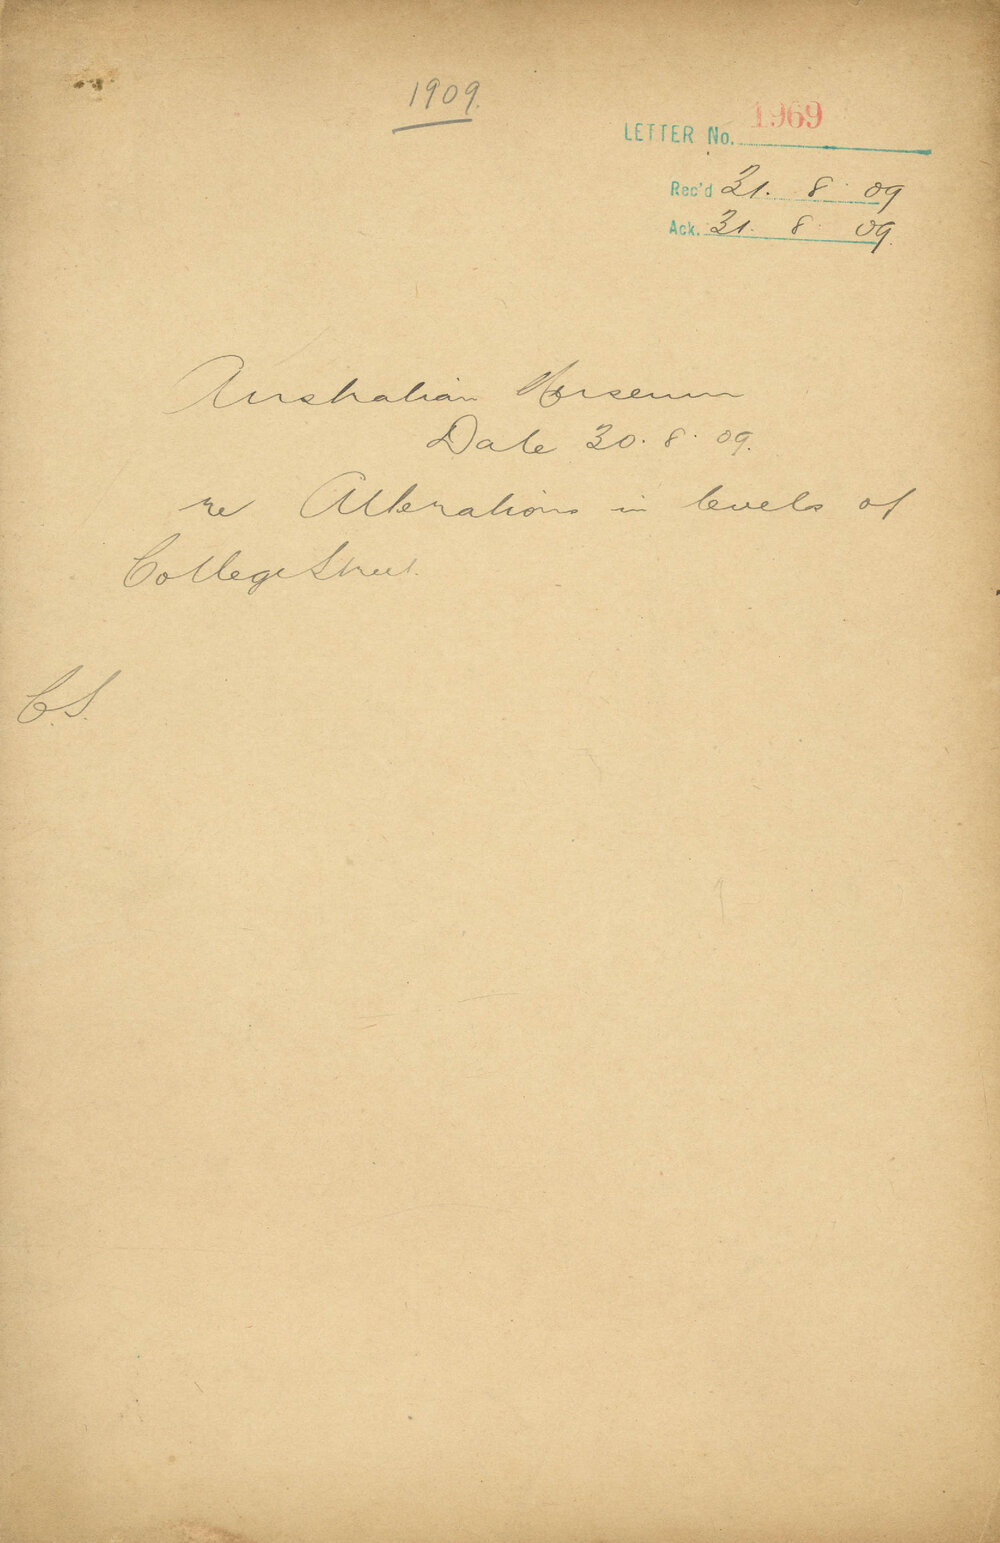 1909.
LETTER No. 1969
Rec'd 31. 8. 09
Ack. 31. 8. 09.
Australian Museum
Date 30. 8. 09.
re Alterations in levels of
College Street.
C.S.